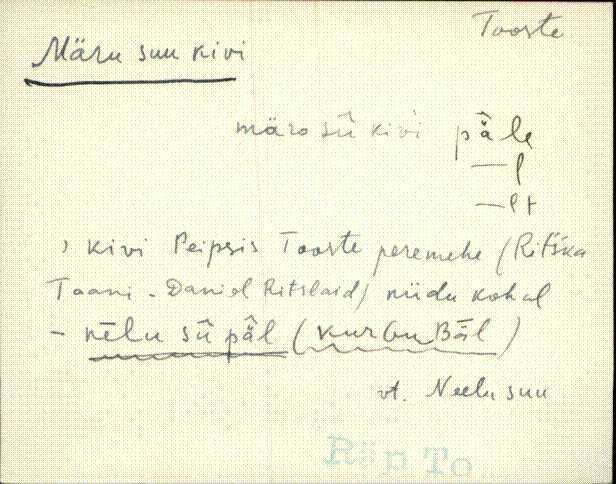 Tooste
Märu suu kivi
märo sū̂ kivi pä̂le
— l
— lt
, kivi Peipsis Tooste peremehe (Ritska
Taani - Daniel Ritslaid) niidu kohal
- nēlu sū̂ pä̂l (kurGu Bä̂l)
vt. Neelu suu
Räp To